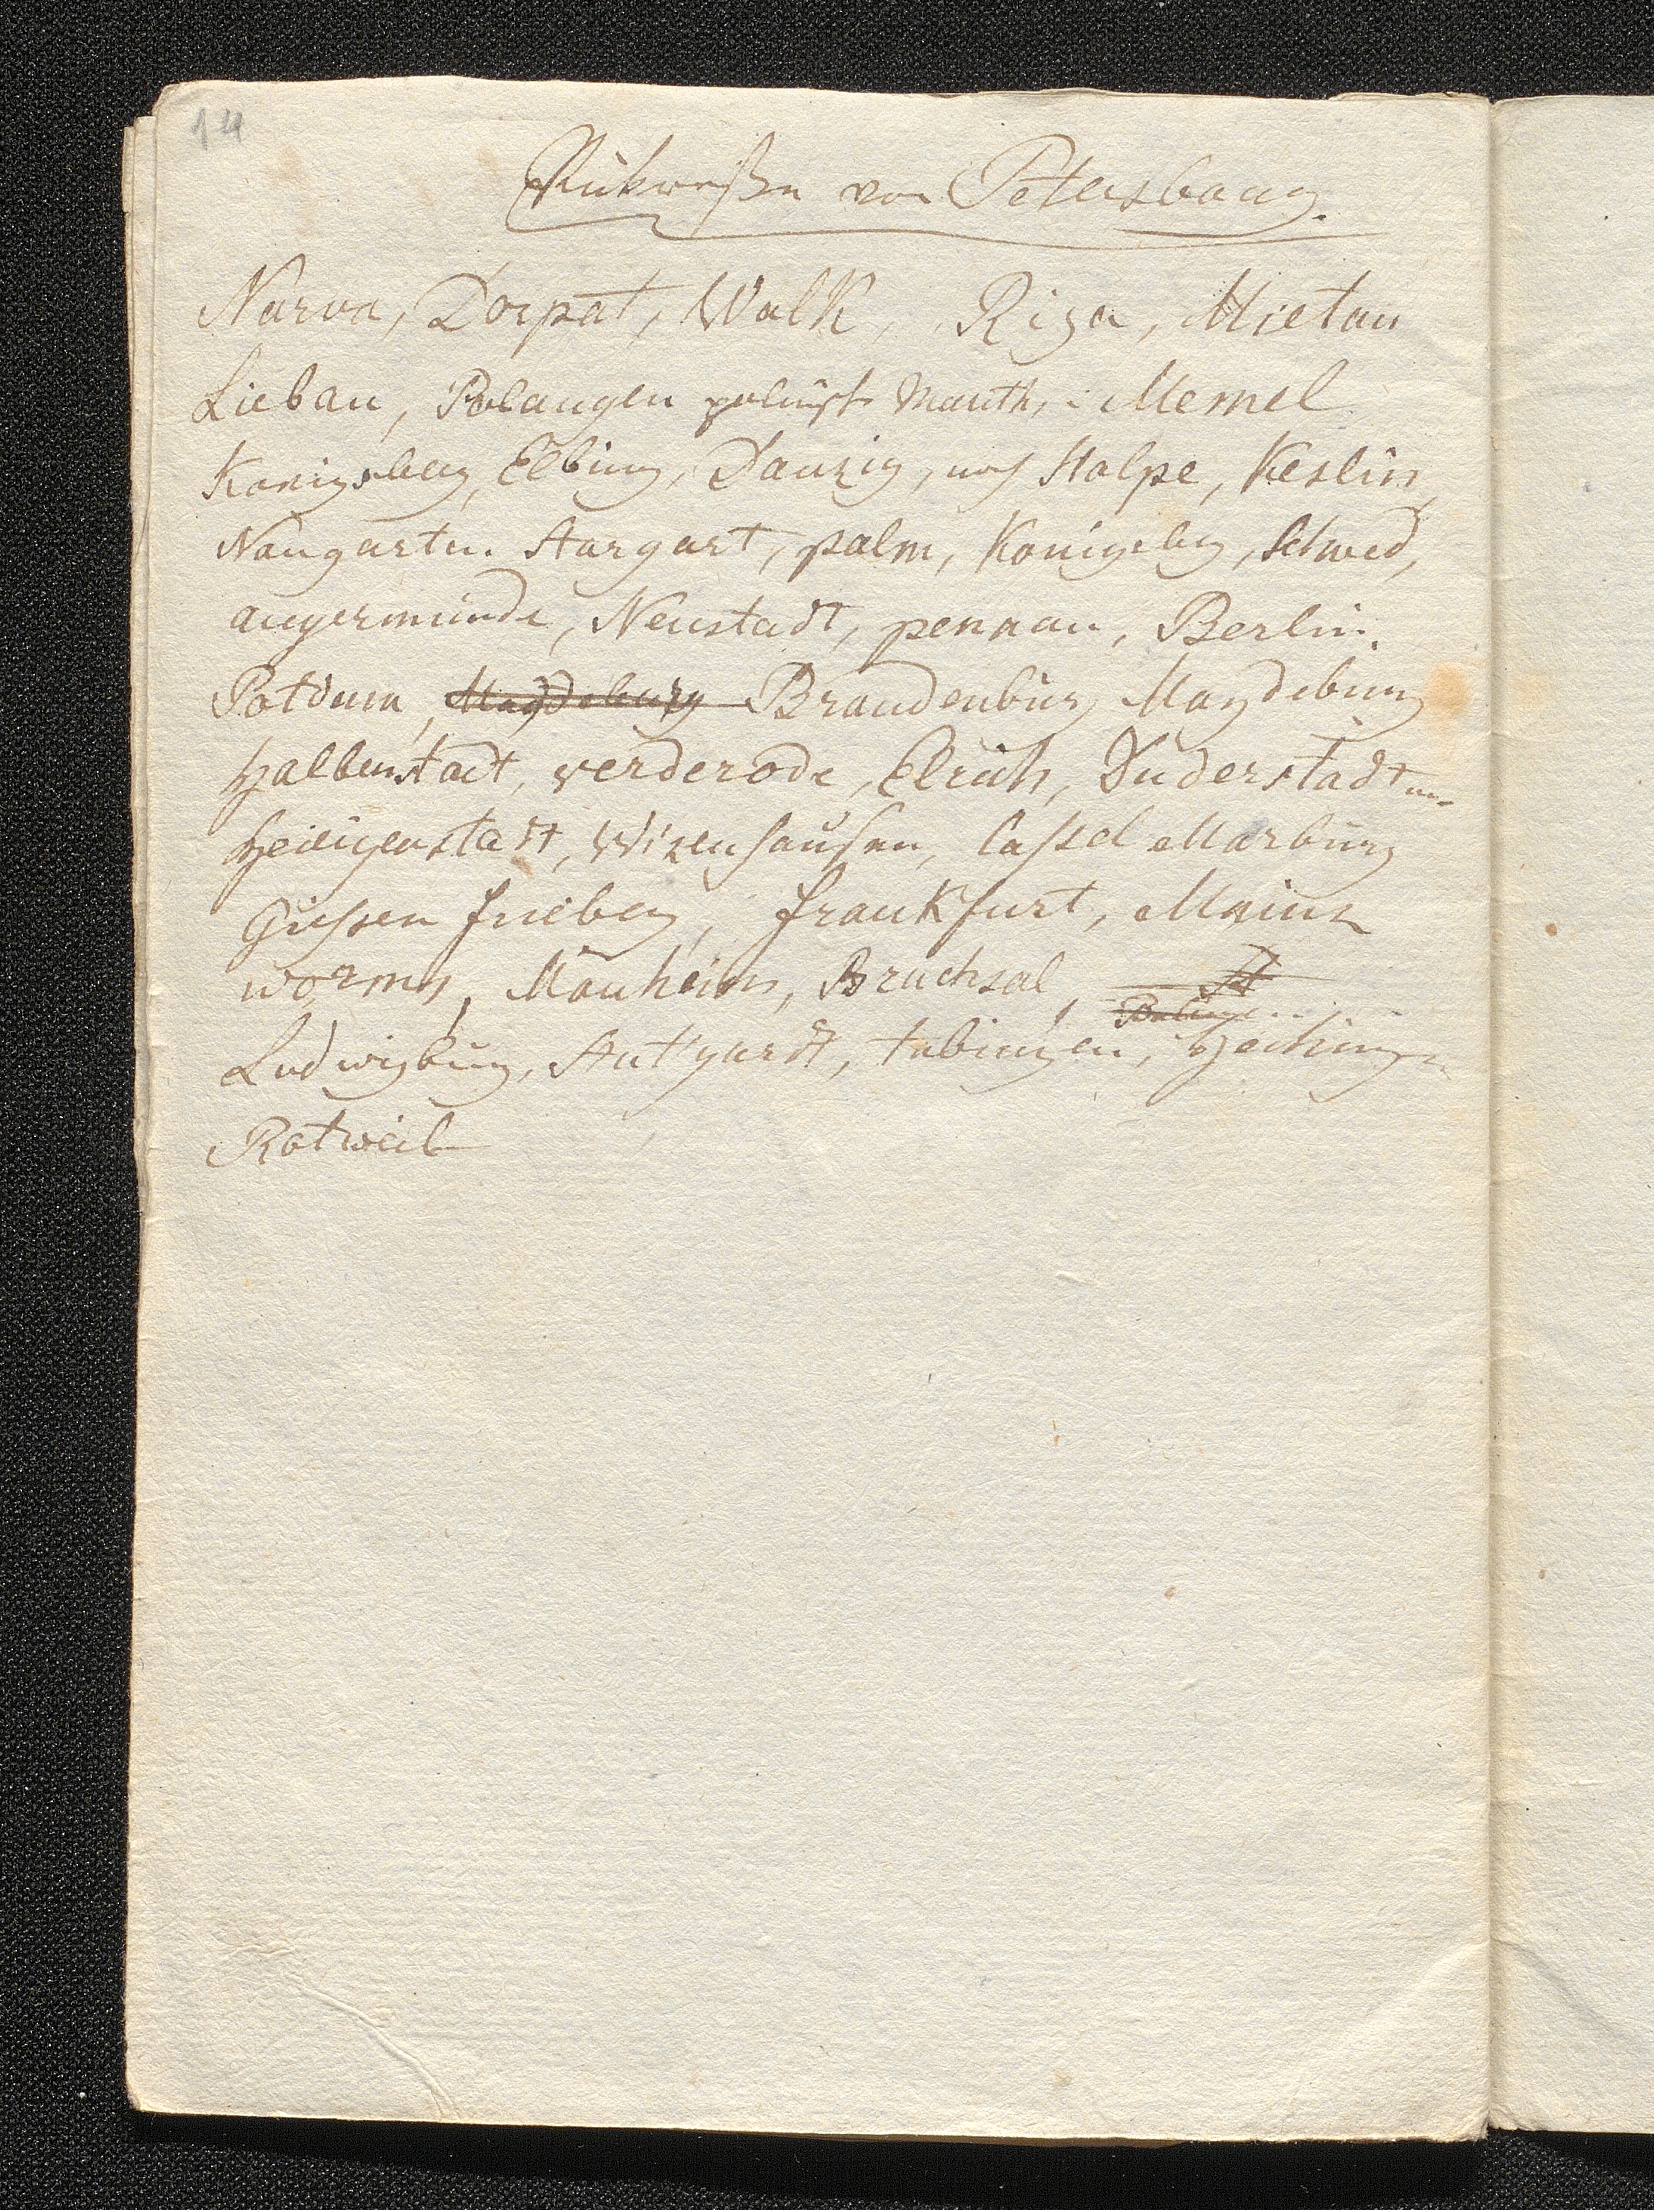 14
Rükreißn von Petersbourg.
Narva, Dorpat, Walk, Riga, Mietau
Liebau, Polangen polnisch Mauth, Memel
Konigsberg, Elbing, Danzig, nach Stolpe, Keslin,
Naugarten. Stargart, palm, Konigsberg, Schwed,
angermünde, Neustadt, pernau, Berlin.
Potdam, Magdeburg Brandenburg Magdeburg
Halberstadt, verderode, Elrich, Duderstadt
Heiligenstadt, Wizenhausen, Cassel Marburg
Giessen frieberg, frankfurt, Mainz
worms, Manheim, Bruchsal, St
Balingen
Ludwigburg, Stutgardt, tubingen, Hechingen
Rotweil